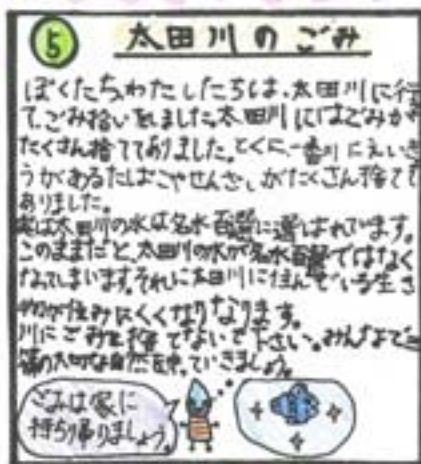 ⑤ 太田川のごみ
ぼくたちわたしたちは、太田川に行
て、ごみ拾いをしました。太田川にはごみが
たくさん捨ててありました。とくに、一番川にえいき
うがあるたばこやせんざいがたくさん捨てて
ありました。
実は太田川の水は名水百選に選ばれています。
このままだと、太田川の水が名水百選ではなく
なてしまいます。それに太田川に住んでいる生き
物が住みにくくなりなります。
川にごみを捨てないで下さい。みんなで
の大切な自然を守っていきましょう。
ごみは家に
持ち帰りましょう。